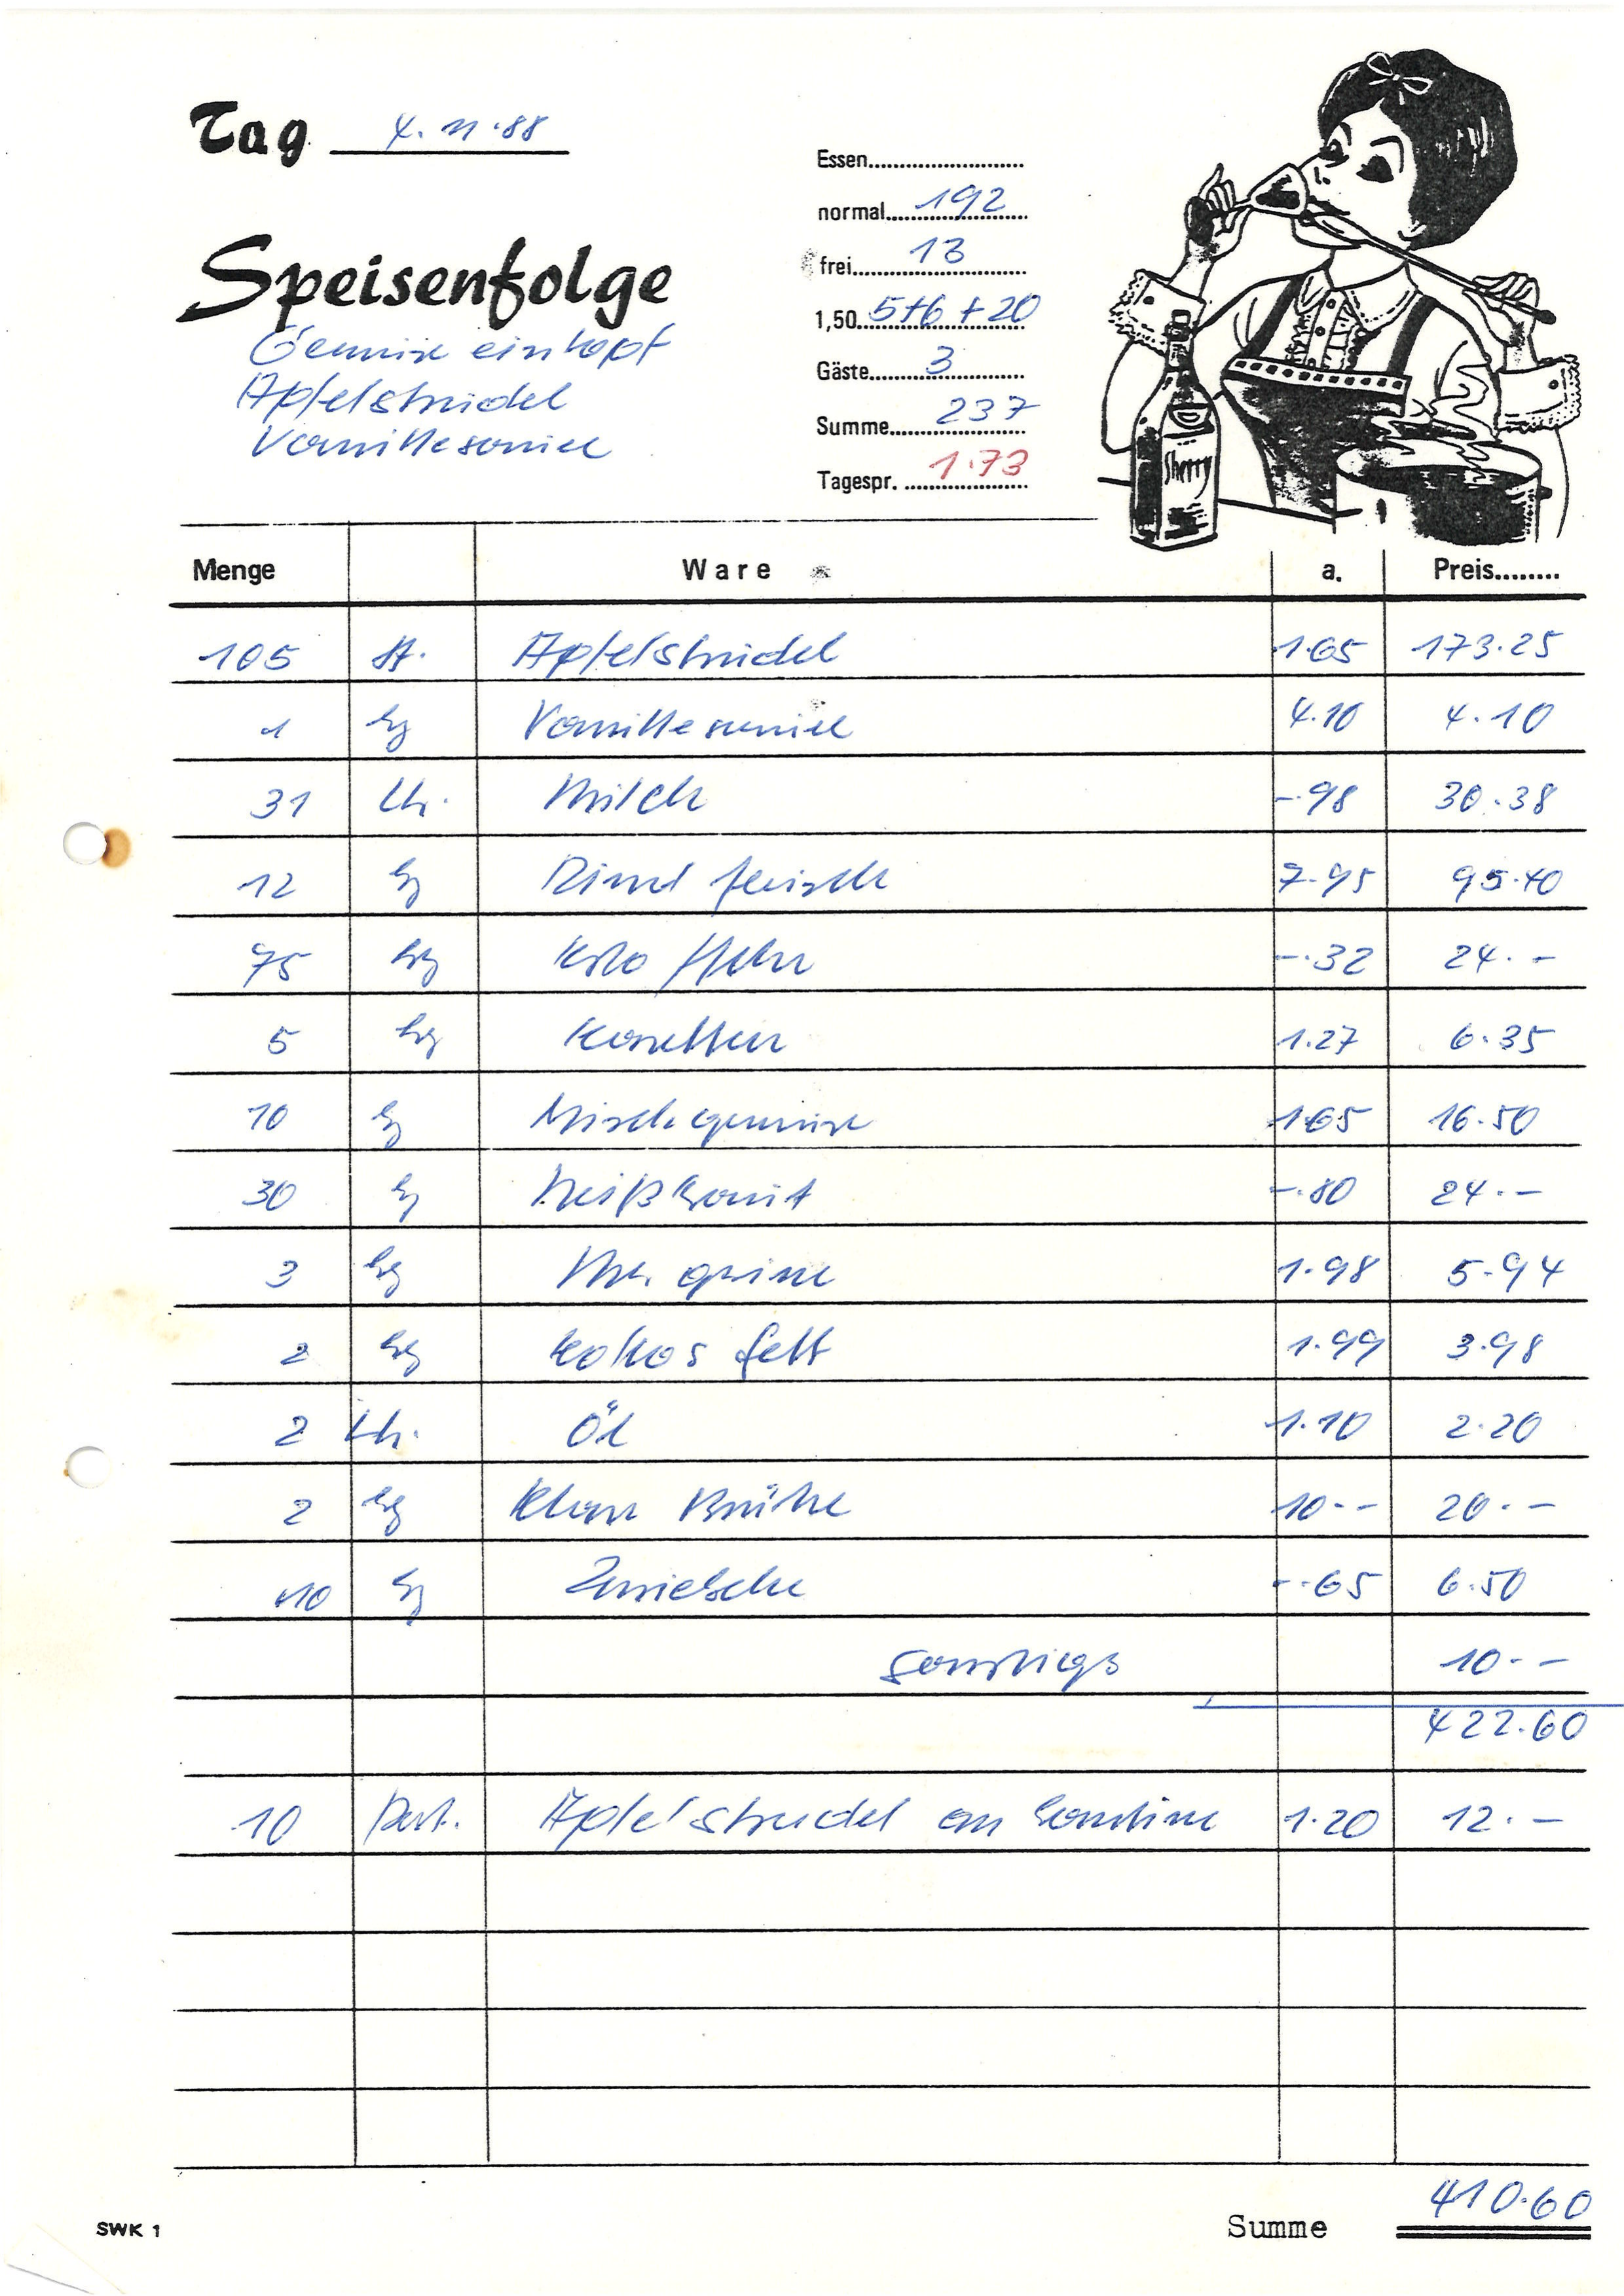 Tag 4.11.88
Essen
normal 192
frei 13
1,50 5+6+20
Gäste 3
Summe 237
Tagespr. 1.73
Speisenfolge
Gemüse eintopf
Apfelstrudel
Vanillesauce
Sherry
Menge Ware a. Preis
105 St. Apfelstrudel 1.65 173.25
1 kg Vanillesauce 4.10 4.10
31 Ltr. Milch -.98 30.38
12 kg Rind fleisch 7.95 95.40
75 kg -.32 24.-
5 kg Karotten 1.27 6.35
10 kg Mischgemüse 1.65 16.50
30 kg Weißkraut -.80 24.-
3 kg Margarine 1.98 5.94
2 kg Kokos fett 1.99 3.98
2 Ltr. Öl 1.10 2.20
2 kg Klare Brühe 10.- 20.-
10 kg Zwiebeln -.65 6.50
Sonstiges 10.-
422.60
10 Port. Apfelstrudel an Kantine 1.20 12.-
SWK 1 Summe 410.60